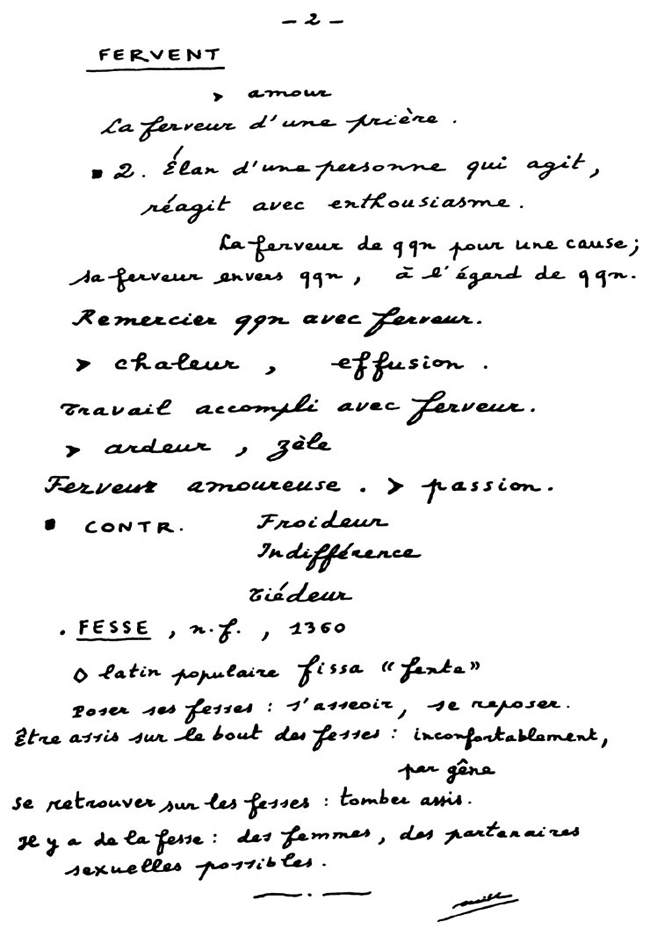 - 2 -
FERVENT
> amour
La ferveur d'une prière.
▪ 2. Élan d'une personne qui agit,
réagit avec enthousiasme.
La ferveur de qqn pour une cause;
sa ferveur envers qqn, à l'égard de qqn.
Remercier qqn avec ferveur.
> chaleur, effusion.
Travail accompli avec ferveur.
> ardeur, zèle
Ferveur amoureuse. > passion.
▪ CONTR. Froideur
Indifférence
Tiédeur
. FESSE, n.f., 1360
◊ latin populaire fissa "fente"
Poser ses fesses : s'asseoir, se reposer.
Être assis sur le bout des fesses : inconfortablement,
par gêne
Se retrouver sur les fesses : tomber assis.
Il y a de la fesse : des femmes, des partenaires
sexuelles possibles.